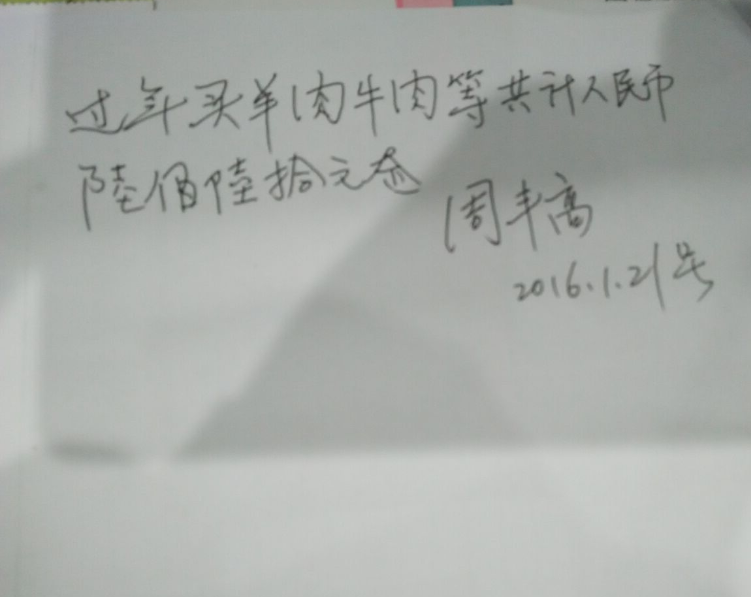 过年买羊肉牛肉等共计人民币
陆佰陆拾元
周丰高
2016.1.21号